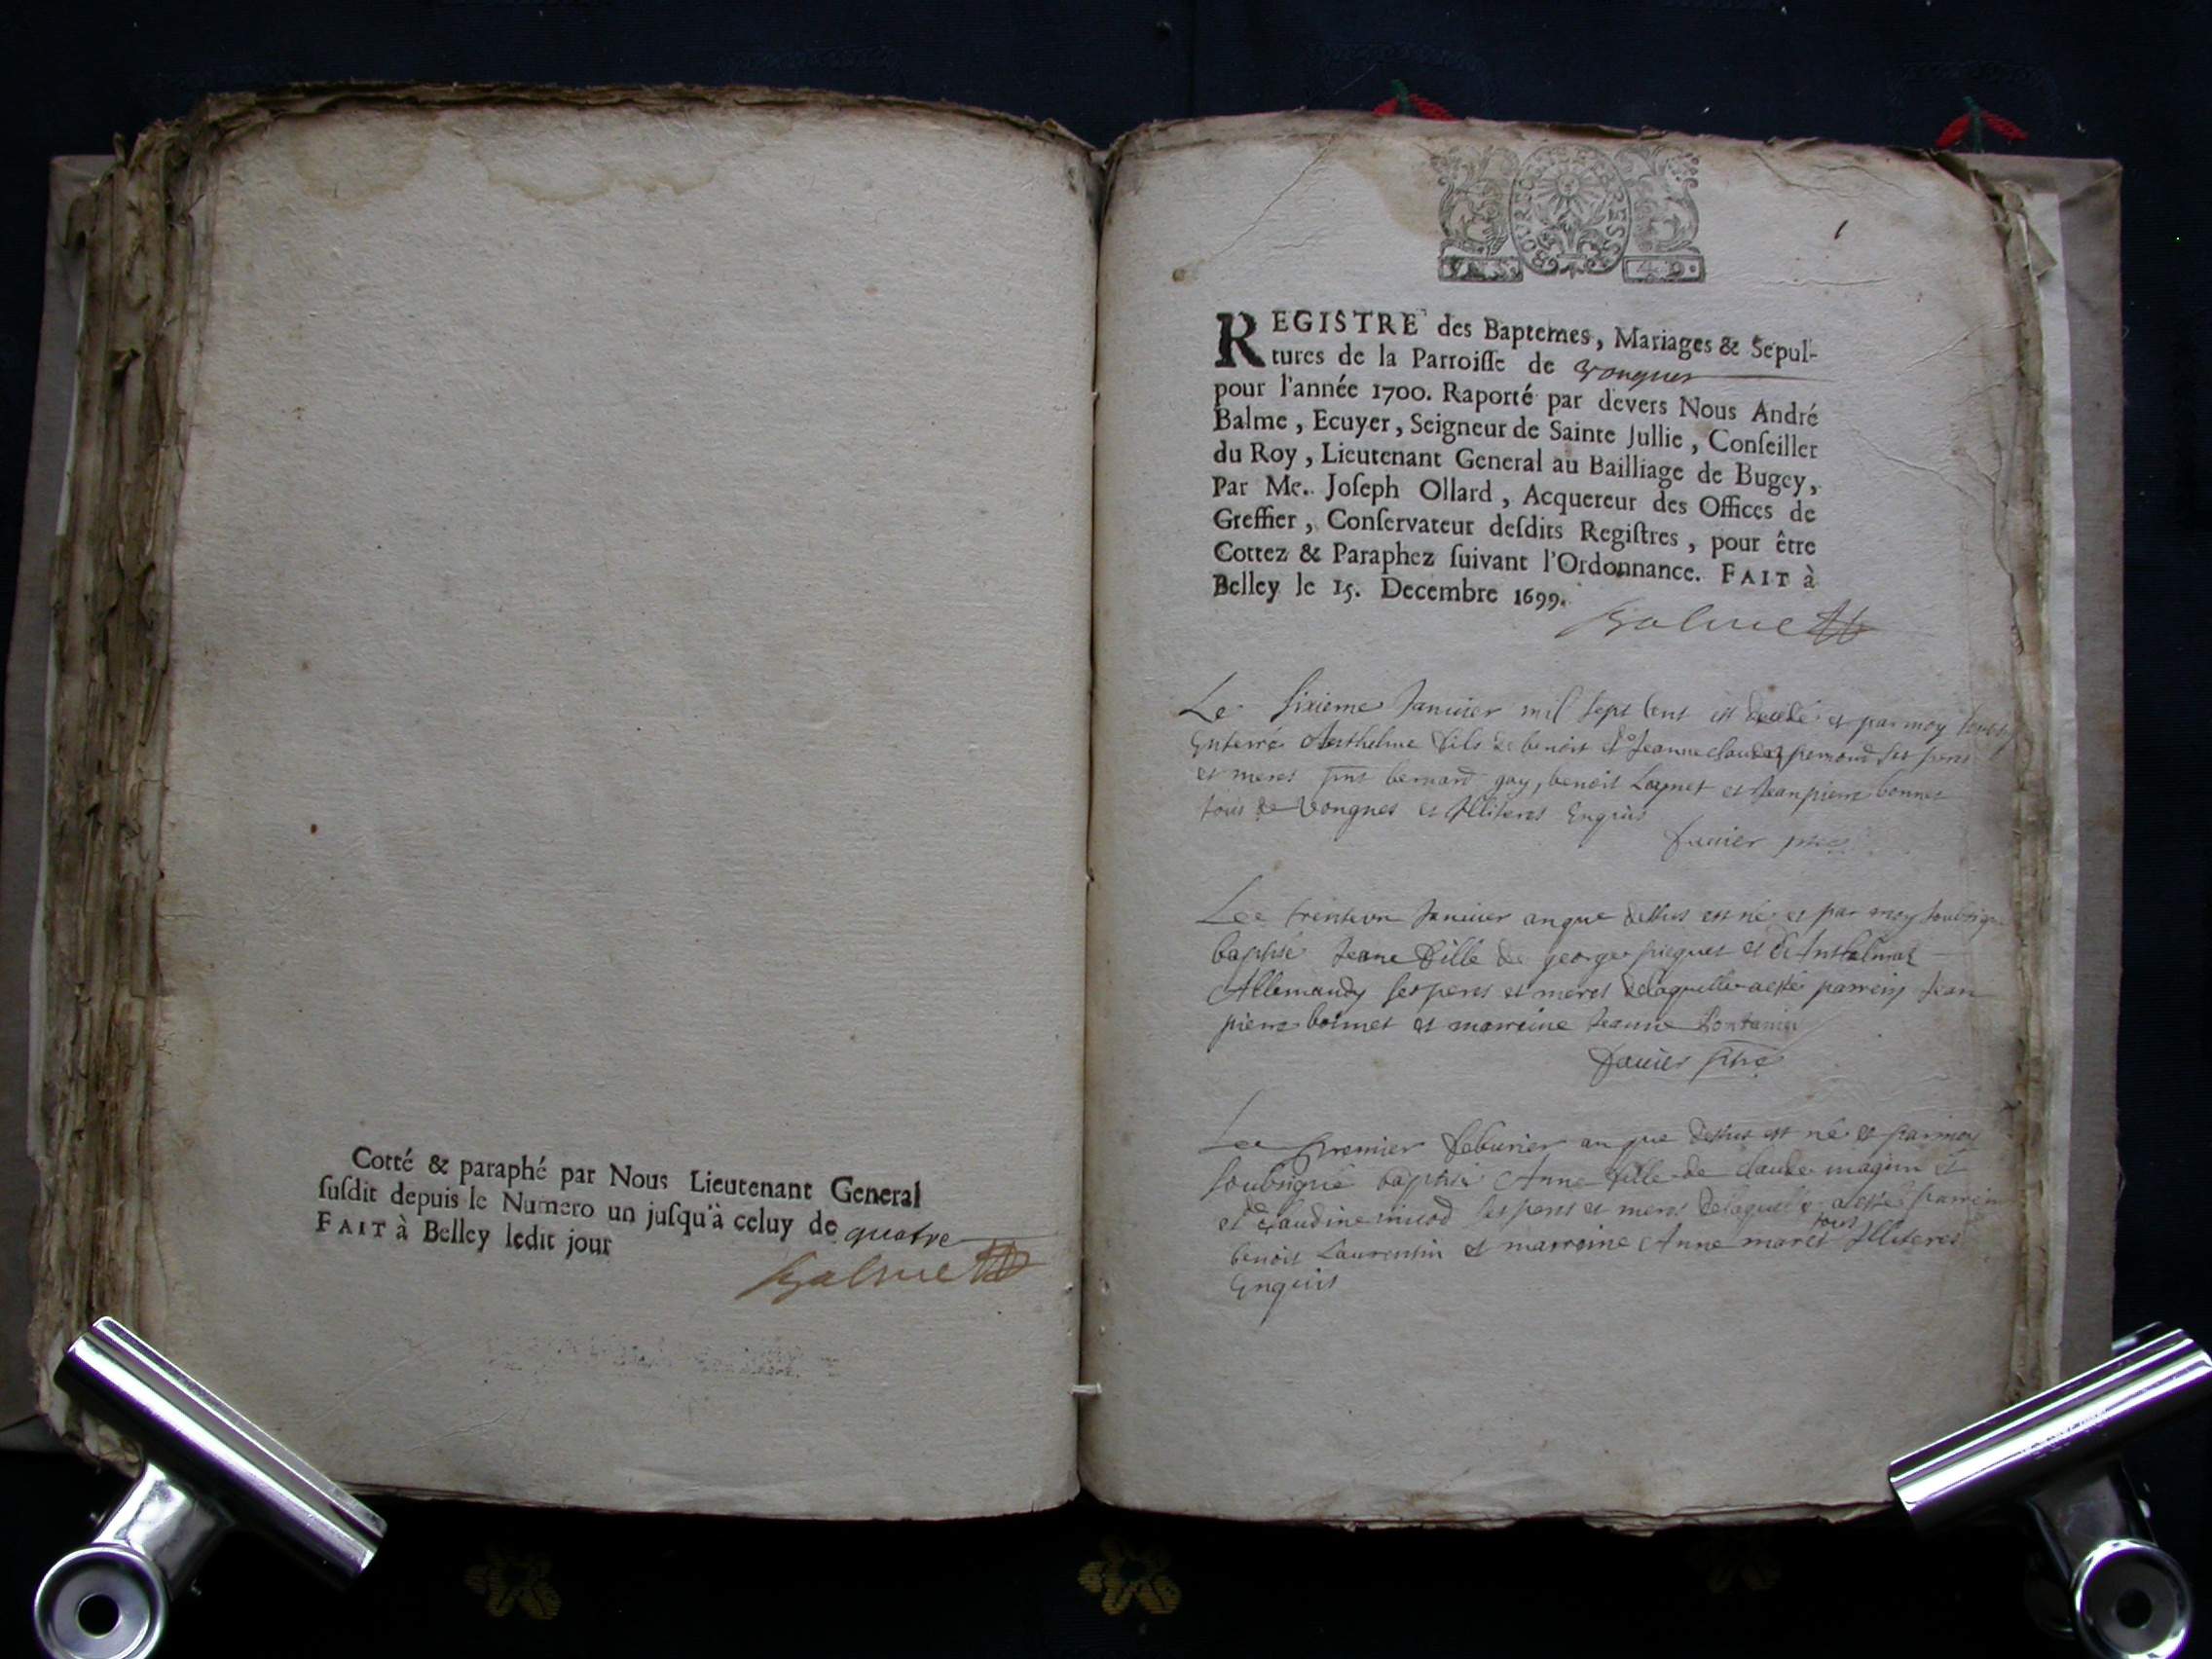 Cotté & paraphé par Nous Lieutenant General
ſuſdit depuis le Numero un juſqu'à celuy de quatre
FAIT à Belley ledit jour
Balme
BOURG EN BRESSE
1
REGISTRE des Baptemes, Mariages & Sepul-
tures de la Parroiſſe de Vongnes
pour l'année 1700. Raporté par devers Nous André
Balme, Ecuyer, Seigneur de Sainte Jullie, Conſeiller
du Roy, Lieutenant General au Bailliage de Bugey,
Par Me. Joſeph Ollard, Acquereur des Offices de
Greffier, Conſervateur deſdits Regiſtres, pour être
Cottez & Paraphez ſuivant l'Ordonnance. FAIT à
Belley le 15. Decembre 1699.
Balme
Le sixieme Januier mil sept cent est decedé et par moy
Enterré Anthelme fils de benoit et Jeanne perroud ses peres
et meres bernard gay, benoit et Jean pierre bonnet
tous de Vongnes et Illiteres Enquis
fauier
Le trenteun Januier an que dessus est né et par moy soubsigné
baptisé Jeane fille de george et de Anthelmaz
Allemandy ses peres et meres de laquelle a esté parrein Jean
pierre bonnet et marreine Jeanne
fauier
Le premier feburier an que dessus est né et par moy
soubsigné baptisé Anne fille de claude magnin et
et claudine nicod ses peres et meres de laquelle a esté parrein
benoit Laurentin et marreine Anne maret tous Illiteres
Enquis